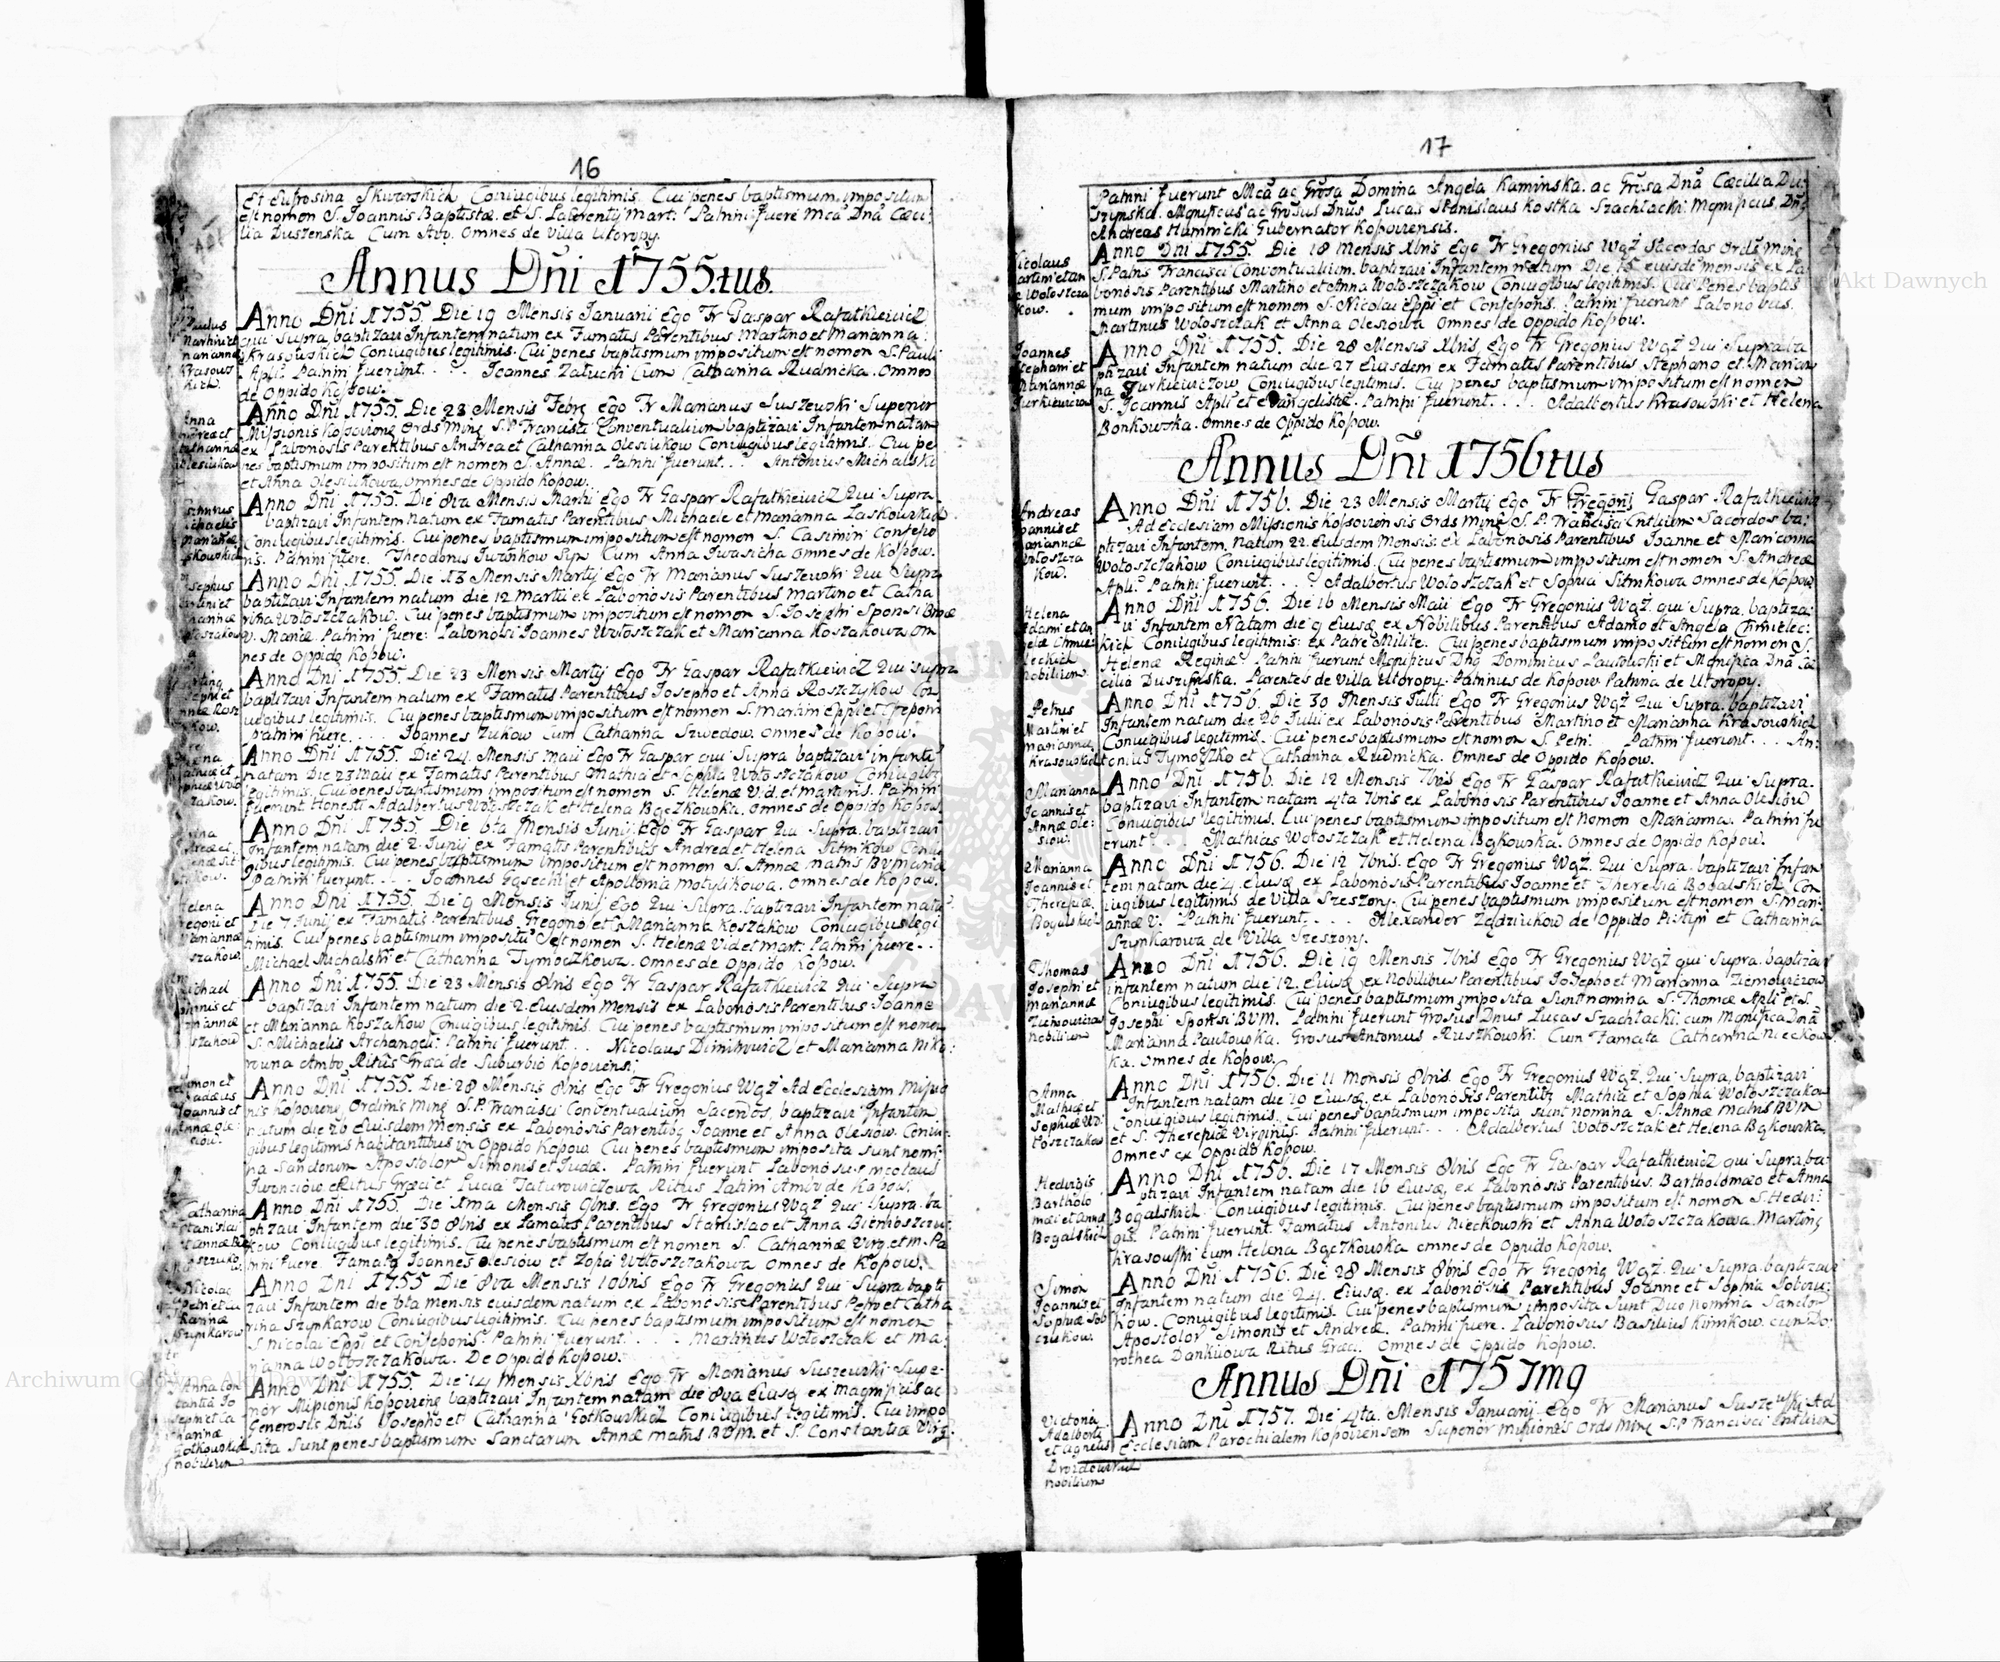 16
Et Eufrosina Skwarskich Coniugibus legitimis. Cui penes baptismum impositum
est nomen S. Joannis Baptistæ. et S. Laurentij Mart: Patrini fuere Mca Dna Cæci-
lia Duszenska Cum Avo. Omnes de Villa Utoropy.
Annus Dñi 1755.tus.
Paulus
Martini et
mariannæ
Krasows
kich.
Anno Dñi 1755. Die 19 Mensis Januarii Ego Fr Gaspar Rafałkiewicz
qui Supra baptizavi Infantem natum ex Famatis Parentibus Martino et Marianna
Krasowskich Coniugibus legitimis. Cui penes baptismum impositum est nomen S. Pauli
Apli. Patrini fuerunt . . . Joannes Załucki Cum Catharina Rudnicka. Omnes
de Oppido Kossow.
Anna
Andreæ et
Catharinæ
Olesiukow
Anno Dñi 1755. Die 23 Mensis Febrs Ego Fr Marianus Suszewski Superior
Missionis Kossoviens Ords Minor S.P. Francisci Conventualium baptizavi Infantem natam
ex Laboriosis Parentibus Andrea et Catharina Olesiukow Coniugibus legitimis. Cui pe-
nes baptismum impositum est nomen S. Annæ. Patrini fuerunt . . . Antonius Michalski
et Anna Olesiukowa, omnes de Oppido Kossow.
Michaelis
Anno Dñi 1755. Die 8va Mensis Martii Ego Fr Gaspar Rafałkiewicz Qui Supra
baptizavi Infantem natum ex Famatis Parentibus Michaele et Marianna Laskowskich
Coniugibus legitimis. Cui penes baptismum impositum est nomen S. Casimiri Confesso
ris. Patrini fuere. Theodorus Iwankow Syn Cum Anna Iwasicha omnes de Kossow.
Josephus
Martini et
Catharinæ
Wołoszczakow
Anno Dñi 1755. Die 13 Mensis Martij Ego Fr Marianus Suszewski Qui Supra
baptizavi Infantem natum die 12 Martii ex Laboriosis Parentibus Martino et Catha
rina Wołoszczakow. Cui penes baptismum impositum est nomen S. Josephi Sponsi Bmæ
V. Mariæ. Patrini fuere: Laboriosi Joannes Wołoszczak et Marianna Koszakowa, om
nes de Oppido Kossow.
Josephi et
Annæ Rosz
kow.
Anno Dni 1755. Die 23 Mensis Martij Ego Fr Gaspar Rafałkiewicz Qui Supra
baptizavi Infantem natum ex Famatis Parentibus Josepho et Anna Roszczykow Con
iugibus legitimis. Cui penes baptismum impositum est nomen S. Martini Eppi et
Patrini fuere . . . Joannes Zukow Cum Catharina Szwedow. Omnes de Kossow.
Helena
Mathiæ et
zakow.
Anno Dñi 1755. Die 24. Mensis Maii Ego Fr Gaspar qui Supra baptizavi infante
natam Die 23 Maii ex Famatis Parentibus Mathia et Sophia Wołoszczakow Coniugibz
legitimis. Cui penes baptismum impositum est nomen S. Helenæ Vid. et martyris. Patrini
fuerunt Honesti Adalbertus Wołoszczak et Helena Bączkowska. Omnes de Oppido Kossow.
Anna
Andreæ et
Helenæ Sit
nikow.
Anno Dñi 1755. Die 6ta Mensis Junij Ego Fr Gaspar Qui Supra. baptizavi
Infantem natam die 2. Junij ex Famatis Parentibus Andrea et Helena Sitnikow Coniu
gibus legitimis. Cui penes baptismum impositum est nomen S. Annæ matris BVMariæ
patrini fuerunt . . . Joannes Gąsecki et Apollonia Motylikowa. omnes de Kossow.
Helena
Gregorii et
Mariannæ
Koszakow
Anno Dñi 1755. Die 9 Mensis Junij Ego Qui Supra. baptizavi Infantem nata
Die 7 Junij ex Famatis Parentibus Gregorio et Marianna Koszakow Coniugibus legi
timis. Cui penes baptismum impositũ est nomen S. Helenæ Vid et mart: Patrini fuere . .
Michael Michalski et Catharina Tymoczkowa. Omnes de Oppido Kossow.
Michael
Joannis et
Mariannæ
Koszakow
Anno Dñi 1755. Die 23 Mensis 8bris Ego Fr Gaspar Rafałkiewicz Qui Supra
baptizavi Infantem natum die 2. Eiusdem Mensis ex Laboriosis Parentibus Joanne
et Marianna Koszakow Coniugibus legitimis. Cui penes baptismum impositum est nomen
S. Michaelis Archangeli: Patrini fuerunt . . . Nicolaus Dimitrowicz et Marianna Niko:
Ambo Ritus Græci de Suburbio Kossoviensi
Simon et
Tadæus
Joannis et
Annæ Ole:
siow.
Anno Dñi 1755. Die 28 Mensis 8bris Ego Fr Gregorius Węż Ad Ecclesiam Missio
nis Kossoviens, Ordinis Minor S.P. Francisci Conventualium Sacerdos, baptizavi Infantem
natum die 26 Eiusdem Mensis ex Laboriosis Parentibz Joanne et Anna Olesiow. Coniu-
gibus legitimis habitantibus in Oppido Kossow. Cui penes baptismum imposita sunt nomi-
na Sanctorum Apostolor Simonis et Judæ. Patrini fuerunt Laboriosus Nicolaus
Iwonciow Ritus Græci et Lucia Taturowiczowa Ritus Latini Ambo de Kossow.
Catharina
Stanislai
et Annæ
Anno Dñi 1755. Die 1ma Mensis 9bris. Ego Fr Gregorius Węż Qui Supra. ba
ptizavi Infantem die 30 8bris ex Famatis Parentibus Stanislao et Anna
kow Coniugibus legitimis. Cui penes baptismum est nomen S. Catharinæ Virg. et M. Pa
trini fuere. Famatz Joannes Olesiow et Zofia Wołoszczakowa Omnes de Kossow.
Nicolaus
Petri et Ca
tharinæ
Szynkarow
Anno Dñi 1755 Die 8va Mensis 10bris Ego Fr Gregorius Qui Supra bapti
zavi Infantem die 6ta mensis eiusdem natum ex Laboriosis Parentibus Petro et Catha
rina Szynkarow Coniugibus legitimis. Cui penes baptismum impositum est nomen
S. Nicolai Eppi et Confessoris. Patrini fuerunt . . . Martinus Wołoszczak et Ma:
rianna Wołoszczakowa. De Oppido Kossow.
Anna Con
stantia Jo
sephi et Ca
tharinæ
Gotkowskich
nobilium
Anno Dñi 1755. Die 14 Mensis Xbris Ego Fr Marianus Suszewski Supe-
rior Missionis Kossoviens baptizavi Infantem natam die 8va Eiusq ex Magnificis ac
Generosis Dnis Josepho et Catharina Gotkowskich Coniugibus legitimis. Cui impo
sita Sunt penes baptismum Sanctarum Annæ matris BVM. et S. Constantiæ Virg.
17
Patrini fuerunt Mca ac Grosa Domina Angela Kaminska. ac Grosa Dna Cæcilia Du-
szynska. Magnificus ac Grosus Dnus Lucas Stanislaus Kostka Szachłacki. Magnificus Dñs
Andreas Huminicki Gubernator Kossoviensis.
Nicolaus
Martini et An
næ Wołoszcza
kow.
Anno Dni 1755. Die 18 Mensis Xbris Ego Fr Gregorius Węż Sacerdos Ords Minor
S. Patris Francisci Conventualium. baptizavi Infantem natum Die 15 eiusdẽ mensis ex La-
boriosis Parentibus Martino et Anna Wołoszczakow Coniugibus legitimis. Cui Penes baptis
mum impositum est nomen S. Nicolai Eppi et Confessoris. Patrini fuerunt Laboriobus.
Martinus Wołoszczak et Anna Olesiowa Omnes de Oppido Kossow.
Joannes
Stephani et
Mariannæ
Jurkiewiczow
Anno Dñi 1755. Die 28 Mensis Xbris Ego Fr Gregorius Węż Qui Supra ba
ptizavi Infantem natum die 27 Eiusdem ex Famatis Parentibus Stephano et Marian
na Jurkiewiczow Coniugibus legitimis. Cui penes baptismum impositum est nomen
S. Joannis Apli et Evangelistæ. Patrini fuerunt . . . Adalbertus Krasowski et Helena
Bonkowska. Omnes de Oppido Kossow.
Annus Dñi 1756tus
Andreas
Joannis et
Mariannæ
Wołoszcza
kow.
Anno Dñi 1756. Die 23 Mensis Martij Ego Fr Gregorij Gaspar Rafałkiewicz
Ad Ecclesiam Missionis Kossoviensis Ords Minor S. P. Francisci Cntlium Sacerdos ba:
ptizavi Infantem. natum 22. Eiusdem Mensis: ex Laboriosis Parentibus Joanne et Marianna
Wołoszczakow Coniugibus legitimis. Cui penes baptismum impositum est nomen S. Andreæ
Apli. Patrini fuerunt . . . Adalbertus Wołoszczak et Sophia Sitnikowa omnes de Kossow
Helena
Adami et An
gelæ Chmie:
leckich
nobilium
Anno Dñi 1756. Die 16 Mensis Maii Ego Fr Gregorius Węż. qui Supra. baptiza:
vi Infantem Natam die 9 Eiusq ex Nobilibus Parentibus Adamo et Angela Chmielec-
kich Coniugibus legitimis: ex Patre Milite. Cui penes baptismum impositum est nomen S.
Helenæ Reginæ. Patrini fuerunt Magnificus Dns Dominicus Pawłowski et Magnifica Dna Cæ
cilia Duszynska. Parentes de Villa Utoropy. Patrinus de Kossow Patrina de Utoropy.
Petrus
Martini et
Mariannæ
Krasowskich
Anno Dñi 1756. Die 30 Mensis Julii Ego Fr Gregorius Węż Qui Supra. baptizavi
Infantem natum die 26 Julii ex Laboriosis Parentibus Martino et Marianna Krasowskich
Coniugibus legitimis. Cui penes baptismum est nomen S. Petri. Patrini fuerunt . . . An:
tonius Tymoszko et Catharina Rudnicka. Omnes de Oppido Kossow.
Marianna
Joannis et
Annæ Ole:
siow.
Anno Dñi 1756. Die 12 Mensis 7bris Ego Fr Gaspar Rafałkiewicz Qui Supra.
baptizavi Infantem natam 4ta 7bris ex Laboriosis Parentibus Joanne et Anna Olesiow
Coniugibus legitimis. Cui penes baptismum impositum est nomen Marianna. Patrini fu
erunt . . . Mathias Wołoszczak et Helena Bąkowska. Omnes de Oppido Kossow.
Marianna
Joannis et
Theresiæ
Bogalskich
Anno Dñi 1756. Die 12 7bris. Ego Fr Gregorius Węż. Qui Supra. baptizavi Infan
tem natam die 4. Eiusq ex Laboriosis Parentibus Joanne et Theresia Bogalskich Con
iugibus legitimis de Villa Szeszory. Cui penes baptismum impositum est nomen S. Mari-
annæ V: Patrini fuerunt . . . Alexander Zędziukow de Oppido Pistyn et Catharina
Szynkarowa de Villa Szeszory.
Thomas
Josephi et
Mariannæ
nobilium
Anno Dñi 1756. Die 19 Mensis 7bris Ego Fr Gregorius Węż qui Supra. baptizavi
infantem natum die 12. Eiusq ex Nobilibus Parentibus Josepho et Marianna
Coniugibus legitimis. Cui penes baptismum imposita Sunt nomina S. Thomæ Apli et S.
Josephi Sponsi BVM. Patrini fuerunt Grosus Dnus Lucas Szachłacki. cum Magnifica Dna
Marianna Pawłowska. Grosus Antonius Ruszkowski. Cum Famata Catharina Nieckows
ka. Omnes de Kossow.
Anna
Mathiæ et
Sophiæ Wo:
łoszczakow
Anno Dñi 1756. Die 11 Mensis 8bris. Ego Fr Gregorius Węż. Qui Supra, baptizavi
Infantem natam die 10 Eiusq. ex Laboriosis Parentibz Mathia et Sophia Wołoszczakow
Coniugibus legitimis. Cui penes baptismum imposita sunt nomina S. Annæ Matris BVM
et S. Theresiæ Virginis. Patrini fuerunt . . . Adalbertus Wołoszczak et Helena Bąkowska,
Omnes ex Oppido Kossow.
Hedvigis
Bartholo
mæi et Annæ
Bogalskich
Anno Dñi 1756. Die 17 Mensis 8bris Ego Fr Gaspar Rafałkiewicz qui Supra. ba:
ptizavi Infantem natam die 16 Eiusq, ex Laboriosis Parentibus. Bartholomæo et Anna
Bogalskich. Coniugibus legitimis. Cui penes baptismum impositum est nomen S. Hedvi:
gis. Patrini fuerunt. Famatus Antonius Nieckowski et Anna Wołoszczakowa. Martinq
Krasowski cum Helena Bączkowska omnes de Oppido Kossow.
Simon
Joannis et
Sophiæ Sob
czukow.
Anno Dñi 1756. Die 28 Mensis 8bris Ego Fr Gregorig Węż. Qui Supra. baptizavi
Infantem natum die 24. Eiusq. ex Laboriosis Parentibus Joanne et Sophia Sobczu:
kow. Coniugibus legitimis. Cui penes baptismum imposita Sunt Duo nomina Sanctor
Apostolor Simonis et Andreæ. Patrini fuere. Laboriosus Basilius Klimkow. cum Do:
rothea Dankuowa Ritus Græci. Omnes de Oppido Kossow.
Annus Dñi 1757mq
Victoria
Adalberti
et Agnetis
Drozdowskich
nobilium
Anno Dñi 1757. Die 4ta. Mensis Januarij Ego Fr Marianus Suszewski Ad
Ecclesiam Parochialem Kossoviensem Superior Missionis Ords Minor S.P. Francisci Cntlium
Archiwum Główne Akt Dawnych